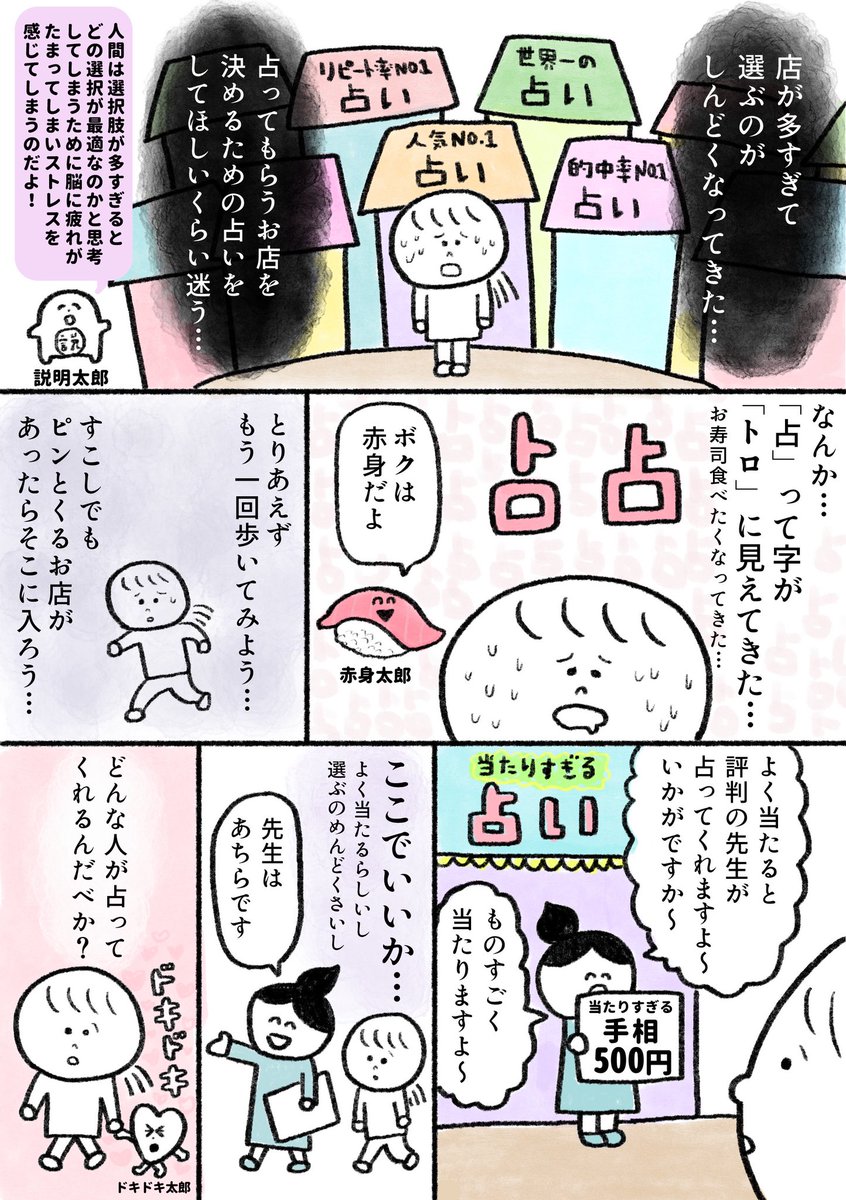 店が多すぎて
選ぶのが
しんどくなってきた…
世界一の
占い
リピート率NO.1
占い
人気NO.1
占い
的中率NO.1
占い
占ってもらうお店を
決めるための占いを
してほしいくらい迷う…
人間は選択肢が多すぎると
どの選択が最適なのかと思考
してしまうために脳に疲れが
たまってしまいストレスを
感じてしまうのだよ！
説
説明太郎
なんか…
「占」って字が
「トロ」に見えてきた…
お寿司食べたくなってきた…
占
占
ボクは
赤身だよ
赤身太郎
とりあえず
もう一回歩いてみよう…
すこしでも
ピンとくるお店が
あったらそこに入ろう…
よく当たると
評判の先生が
占ってくれますよ〜
いかがですか〜
当たりすぎる
占い
ものすごく
当たりますよ〜
当たりすぎる
手相
500円
ここでいいか…
よく当たるらしいし
選ぶのめんどくさいし
先生は
あちらです
どんな人が占って
くれるんだべか？
ドキドキ
ドキドキ太郎